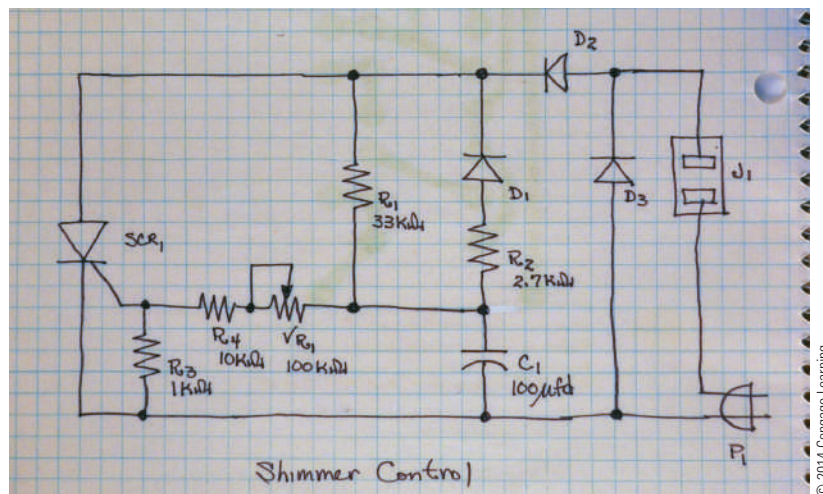 D2
J1
D1
D3
R1
33KΩ
SCR1
R2
2.7KΩ
R4
10KΩ
VR1
100KΩ
R3
1KΩ
C1
100µfd
P1
Shimmer Control
© 2014 Cengage Learning